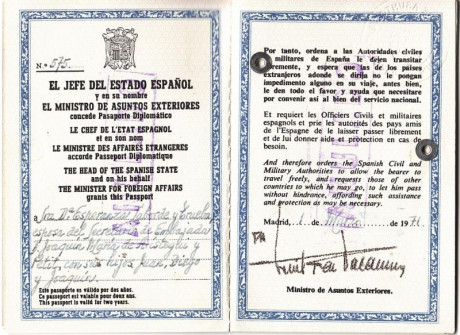 N.º 575.
EL JEFE DEL ESTADO ESPAÑOL
y en su nombre
EL MINISTRO DE ASUNTOS EXTERIORES
concede Pasaporte Diplomático
LE CHEF DE L'ETAT ESPAGNOL
et en son nom
LE MINISTRE DES AFFAIRES ETRANGERES
accorde Passeport Diplomatique
THE HEAD OF THE SPANISH STATE
and on his behalf
THE MINISTER FOR FOREIGN AFFAIRS
grants this Passport
a Sra. Dª Esperanza
esposa del Secretario de Embajada
Joaquin
con sus hijos Juan, Diego
y Joaquin
Este pasaporte es válido por dos años.
Ce passeport est valable pour deux ans.
This passport is valid for two years.
Por tanto, ordena a las Autoridades civiles
y militares de España le dejen transitar
libremente, y espera que las de los países
extranjeros adonde se dirija no le pongan
impedimento alguno en su viaje, antes bien,
le den todo el favor, y ayuda que necesitare
por convenir así al bien del servicio nacional.
Et requiert les Officiers Civils et militaires
espagnols et prie les autorités des pays amis
de l'Espagne de le laisser passer librement
et de lui donner aide et protection en cas de
besoin.
And therefore orders the Spanish Civil and
Military Authorities to allow the bearer to
travel freely, and requests those of other
countries to which he may go, to let him pass
without hindrance, affording such assistance
and protection as may be necessary.
Madrid, 1 de de 1971
PA
Ministro de Asuntos Exteriores.